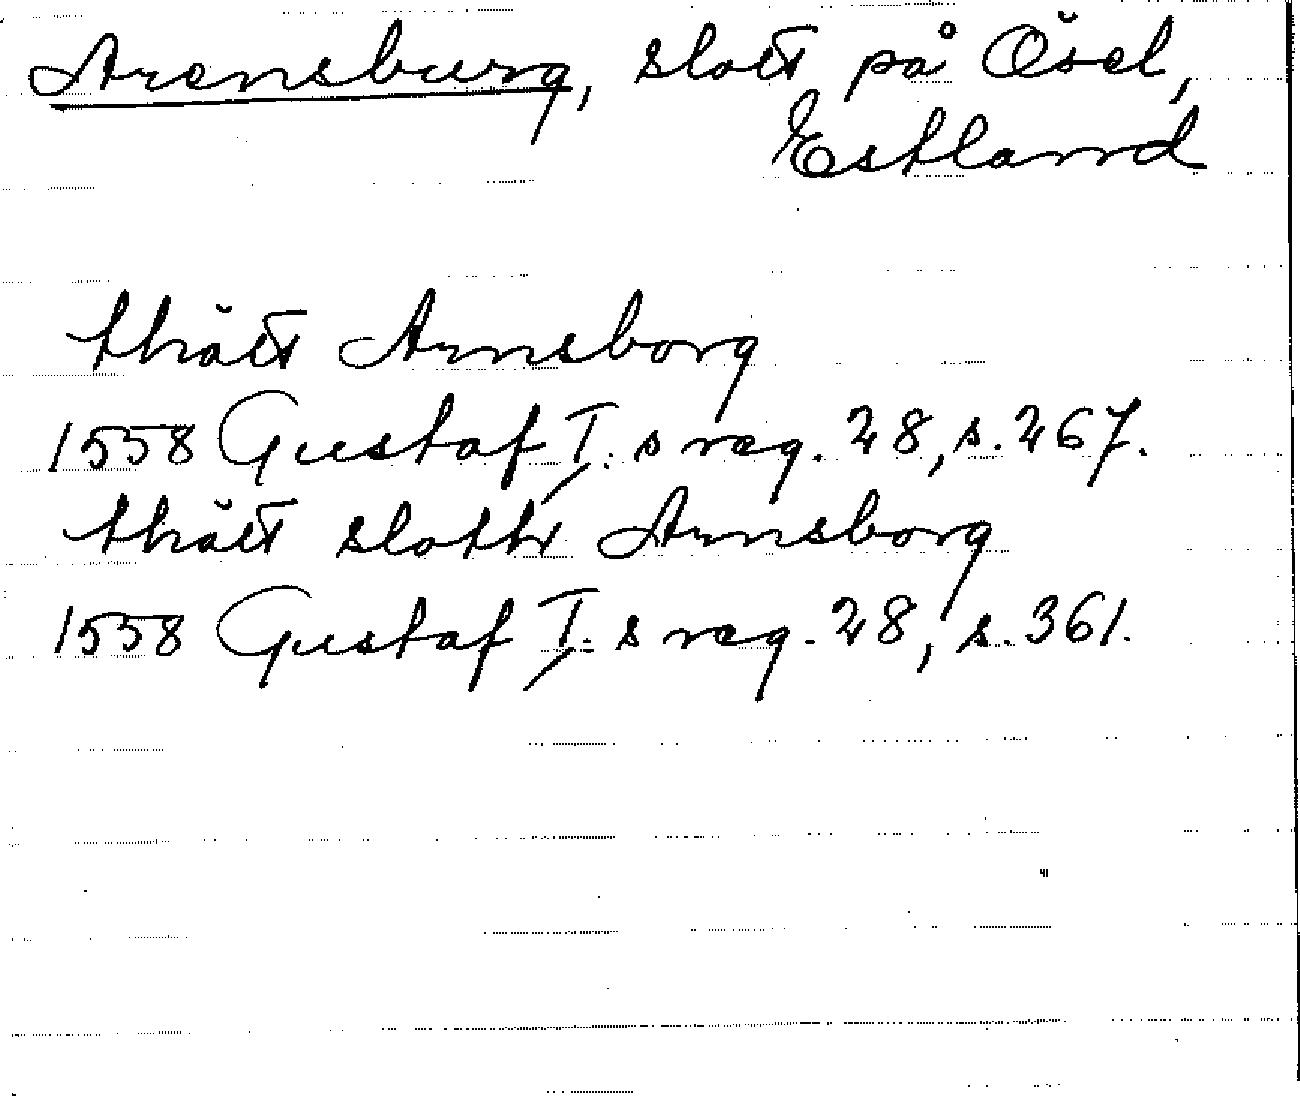 Arensburg, slott på Ösel,
Estland
thätt Arnsborg
1558 Gustaf I:s reg. 28, s. 267.
thätt slotth Arnsborg
1558 Gustaf I:s reg. 28, s. 361.